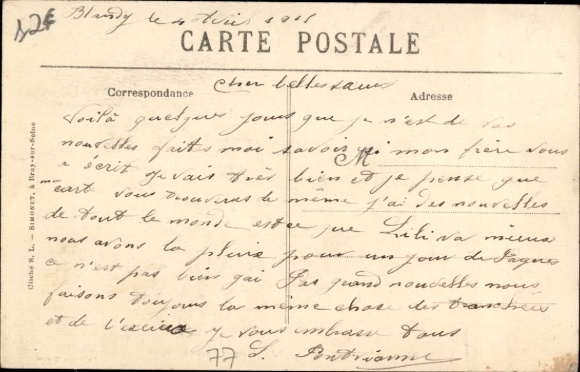 Blandy le 4 Avril 1915
CARTE POSTALE
Correspondance
Adresse
Cher belle sœur
Voilà quelques jours que je n'est de vos
nouvelles faites moi savoir si mon frère vous
M
a écrit je vais très bien et je pense que
ma cart vous trouveras de même j'ai des nouvelles
de tout le monde est ce que Lili va mieux
nous avons la pluie pour un jour de Paques
ce n'est pas bien gai Pas grand nouvelles nous
faisons toujours la même chose des tranchées
et de l'exercice je vous embrasse tous
L.
77
Cliché S. L. — SIMONET, à Bray-sur-Seine